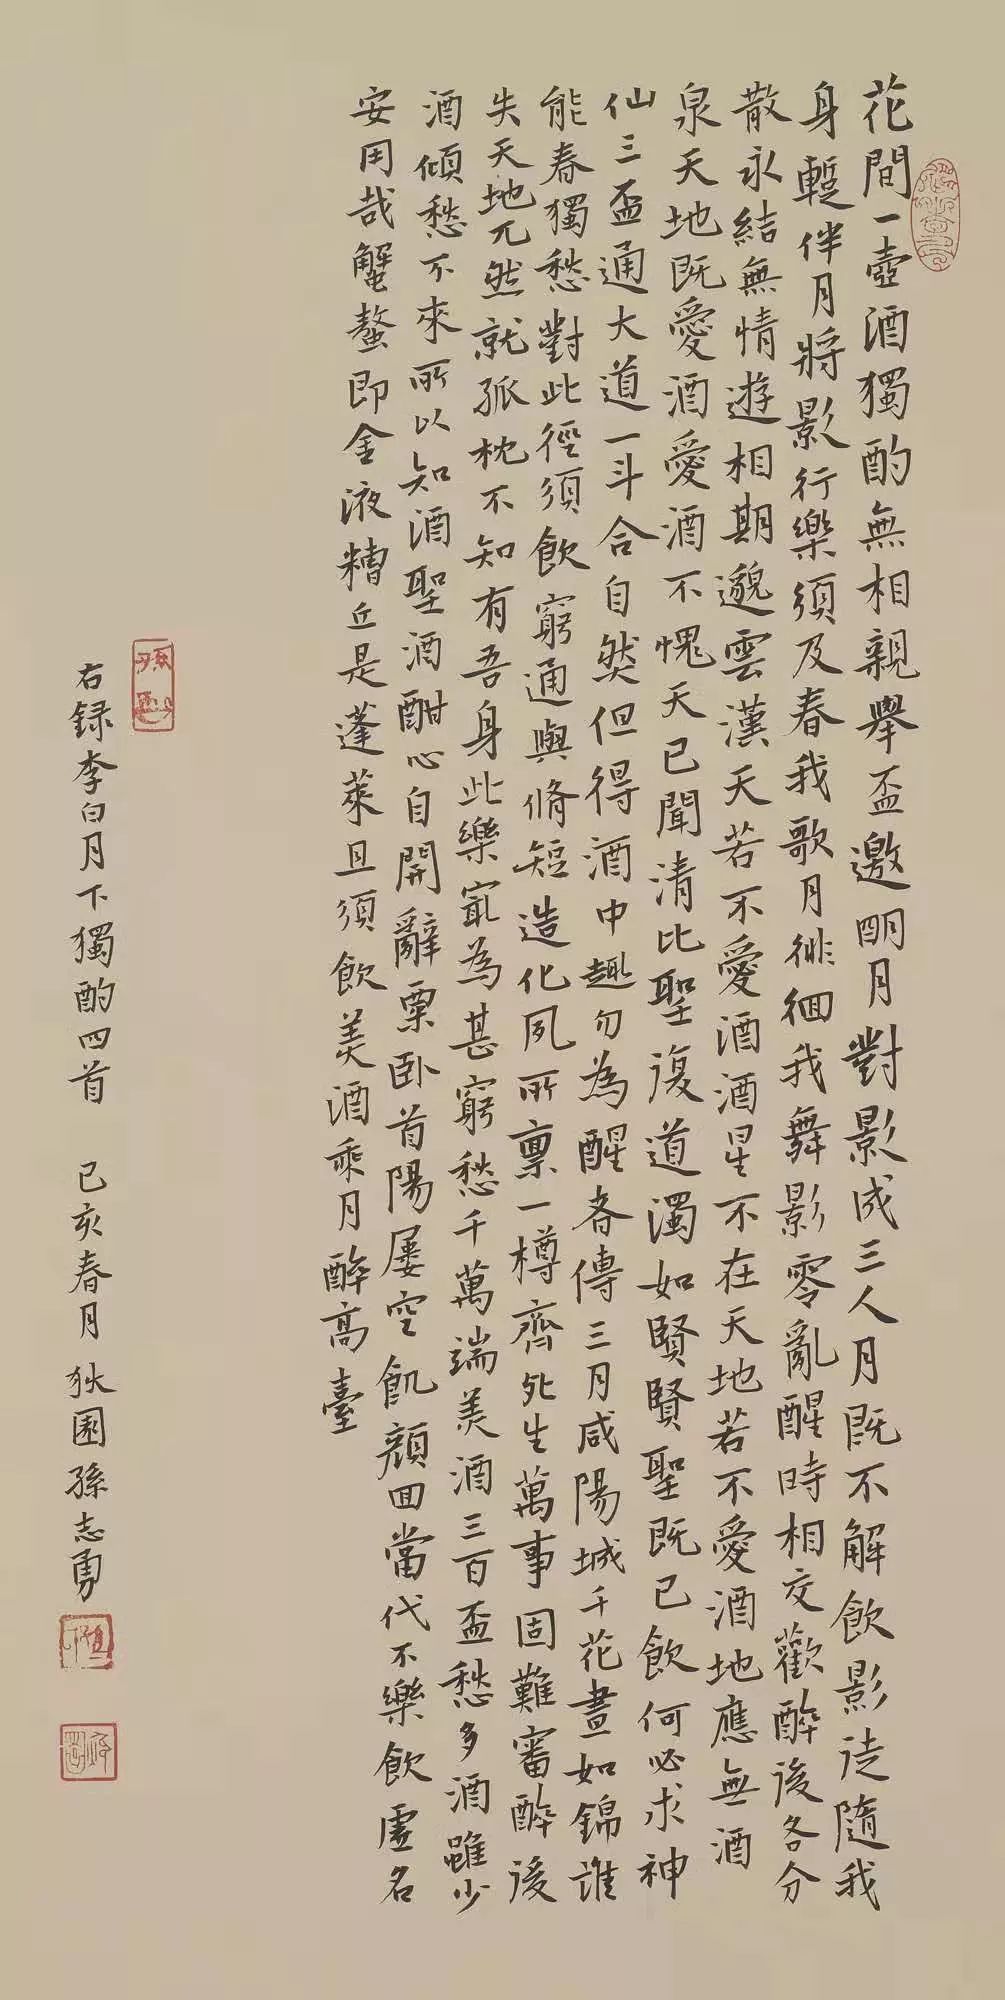 花間一壺酒獨酌無相親舉盃邀明月對影成三人月既不解飲影徒隨我
身蹔伴月將影行樂須及春我歌月徘徊我舞影零亂醒時相交歡醉後各分
散永結無情遊相期邈雲漢天若不愛酒酒星不在天地若不愛酒地應無酒
泉天地既愛酒愛酒不愧天已聞清比聖復道濁如賢賢聖既已飲何必求神
仙三盃通大道一斗合自然但得酒中趣勿為醒者傳三月咸陽城千花晝如錦誰
能春獨愁對此徑須飲窮通與脩短造化夙所禀一樽齊死生萬事固難審醉後
失天地兀然就孤枕不知有吾身此樂冣為甚窮愁千萬端美酒三百盃愁多酒雖少
酒傾愁不來所以知酒聖酒酣心自開辭粟卧首陽屢空飢顏回當代不樂飲虛名
安用哉蟹螯即金液糟丘是蓬萊且須飲美酒乘月醉高臺
右録李白月下獨酌四首 已亥春月 狄園孫志勇